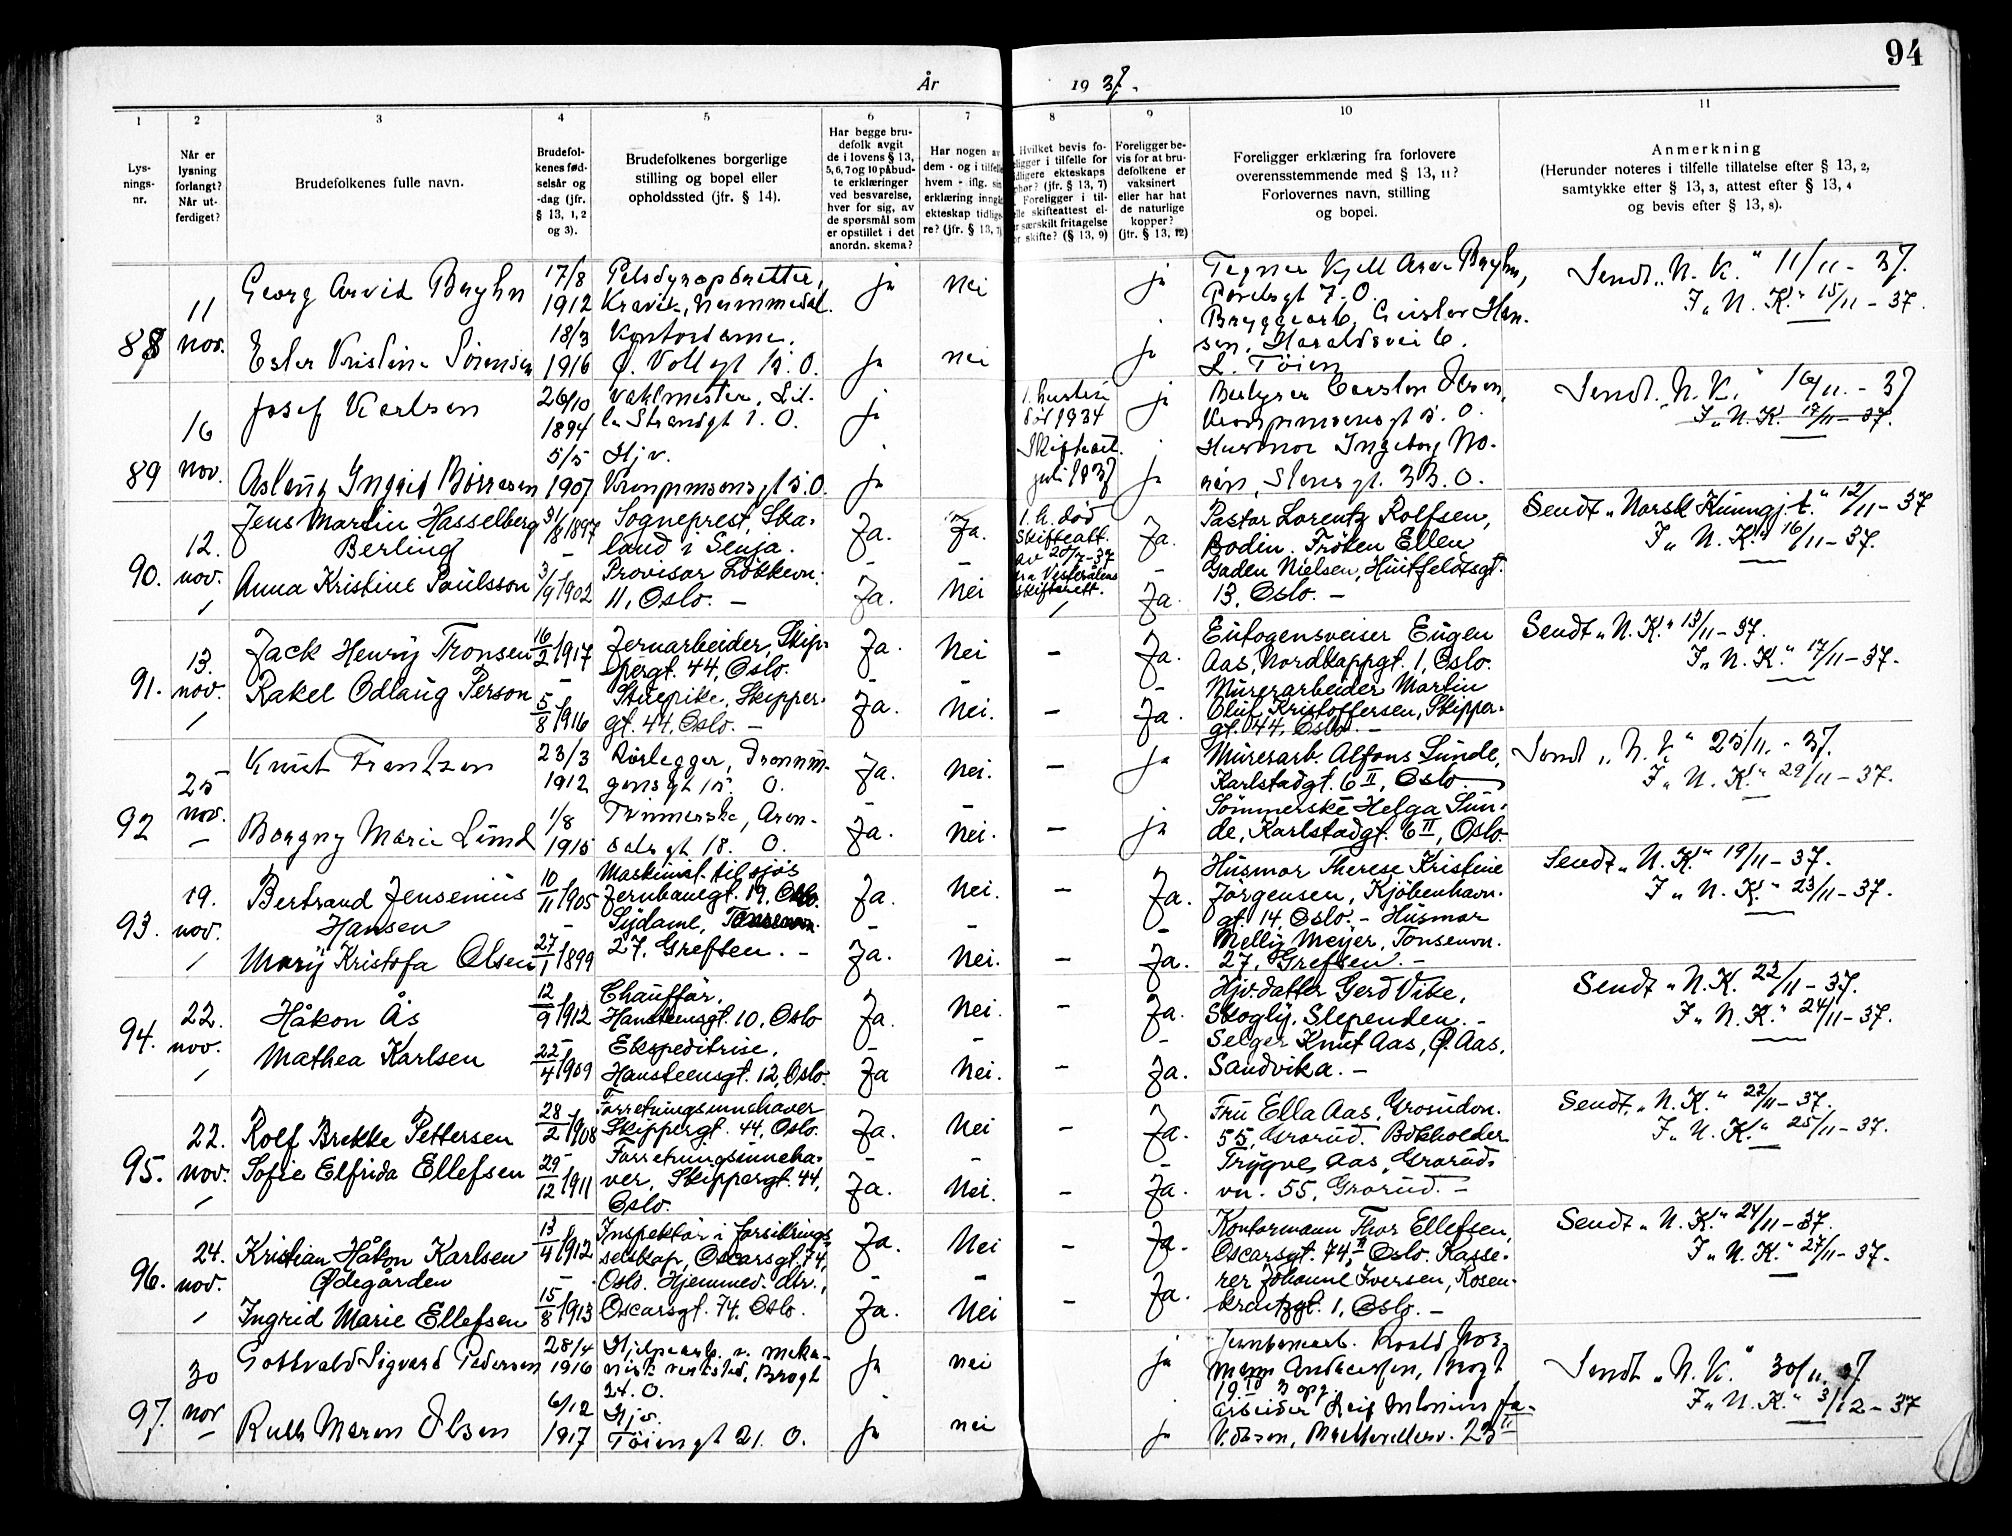 94
År 1937.
1 2 3 4 5 6 7 8 9 10 11
Lys-
nings-
nr.
Når er
lysning
forlangt?
Når ut-
ferdiget?
Brudefolkenes fulle navn.
Brudefol-
kenes fød-
selsår og
-dag (jfr.
§ 13, 1, 2
og 3).
Brudefolkenes borgerlige
stilling og bopel eller
opholdssted (jfr. § 14).
Har begge bru-
defolk avgit
de i lovens § 13,
5, 6, 7 og 10 påbud-
te erklæringer
ved besvarelse,
hver for sig, av
de spørsmål som
er opstillet i det
anordn. skema?
Har nogen av
dem - og i tilfelle
hvem - iflg. sin
erklæring inngått
ekteskap tidlige-
re? (jfr. § 13, 7)
Hvilket bevis fo-
religger i tilfelle for
tidligere ekteskaps
ophør? (jfr. § 13, 7)
Foreligger i til-
felle skifteattest el-
ler særskilt fritagelse
for skifte? (§ 13, 9)
Foreligger be-
vis for at bru-
defolkene er
vaksinert
eller har hat
de naturlige
kopper?
(jfr. § 13, 12)
Foreligger erklæring fra forlovere
overensstemmende med § 13, 11?
Forlovernes navn, stilling
og bopel.
Anmerkning
(Herunder noteres i tilfelle tillatelse efter § 13, 2,
samtykke efter § 13, 3, attest efter § 13, 4
og bevis efter § 13, 8).
88
11
nov.
Georg Arvid Bryhn
17/8
1912
Pelsdyropdretter,
Kravik, Nummedal.
ja
nei
ja
Tegner Kjell Arve Bryhn,
gt 7. O.
Sendt „N. K." 11/11 - 37.
I „N. K." 15/11 - 37.
Ester Kristine Sørensen
18/3
1916
Kontordame,
Ø. Vollgt 15. O.
ja
nei
ja
Bryggearb. Geisler Han-
sen, Haraldsvei 6.
L. Tøien
89
16
nov.
Josef Karlsen
26/10
1894
Vaktmester, Lil-
le Strandgt 1. O.
ja
1. hustru
død 1934
Skifteatt.
juli 1937
ja
Carsten Olsen,
gt 5. O.
Sendt „N. K." 16/11 - 37
I „N. K." 17/11 - 37.
Aslaug Ingrid Børresen
5/5
1907
Hjv.
gt 5. O.
ja
ja
Husmor Ingeborg No-
rén, Stensgt. 33. O.
90.
12.
nov.
Jens Martin Hasselberg
Berling
31/8 1897
Sogneprest, Ska-
land i Senja.
Ja.
Ja.
1. h. død
Skifteatt.
av 20/7 - 37
fra Vesterålens
skifterett.
Ja.
Pastor Lorentz Rolfsen,
Bodin. Frøken Ellen
Gaden Nielsen, Huitfeldtsgt.
13, Oslo. -
Sendt „Norsk Kunngj.t." 12/11 - 37
I „N. K." 16/11 - 37.
Anna Kristine Paulsson
3/9 1902
Provisor Løkkevn.
11, Oslo. -
Ja.
Nei
Ja.
91.
13.
nov.
Jack Henry Tronsen
16/2 1917
Jernarbeider, Skip-
pergt. 44, Oslo.
Ja.
Nei
-
Ja.
Autogensveiser Eugen
Aas, Nordkappgt. 1, Oslo.
Sendt „N. K." 13/11 - 37.
I „N. K." 17/11 - 37.
Rakel Odlaug Person
5/8 1916
Stuepike, Skipper-
gt. 44, Oslo. -
Ja.
Nei.
-
Ja.
Murerarbeider Martin
Oluf Kristoffersen, Skipper-
gt. 44, Oslo. -
92
25
nov.
-
Knut Frantzen
23/3
1912
Rørlegger, Dronnin-
gensgt 15. O.
Ja.
Nei.
-
ja
Murerarb. Alfons Sunde,
Karlstadgt. 6 II, Oslo
Sendt „N. K." 25/11. - 37.
I „N. K." 29/11 - 37.
Borgny Marie Lund
1/8
1915
Tvinnerske, Aren-
dalsgt 18. O.
Ja.
Nei.
-
ja
Sømmerske Helga Sun-
de, Karlstadgt. 6 II, Oslo.
93.
19.
nov.
Bertrand Jensenius
Hansen
10/11 1905
Maskinist til sjøs
Jernbanegt. 19, Oslo.
Ja.
Nei.
-
Ja.
Husmor Therese Kristine
Jörgensen, Kjöbenhavn-
gt. 14, Oslo. - Husmor
Sendt „N. K." 19/11 - 37.
I „N. K." 23/11 - 37.
Mary Kristofa Olsen
27/1 1899
Sydame, Tonsenvn.
27, Grefsen. -
Ja.
Nei.
-
Ja.
Melly Meyer, Tonsenvn.
27, Grefsen. -
94.
22.
nov.
Håkon Ås
12/9 1912
Chauffør,
Hansteensgt. 10, Oslo
Ja.
Nei.
-
Ja.
Hjv. datter Gerd Vike,
Skogly, Slependen. -
Sendt „N. K. 22/11 - 37.
I „N. K." 24/11 - 37.
Mathea Karlsen
22/4 1909
Ekspeditrise,
Hansteensgt. 12, Oslo.
Ja
Nei.
-
Ja.
Selger Knut Aas, Ø. Aas,
Sandvika. -
95.
22.
nov.
Rolf Brekke Pettersen
28/2 1908
Forretningsinnehaver
Skippergt. 44, Oslo.
Ja.
Nei
-
Ja.
Fru Ella Aas, Grorudvn.
55, Grorud. Bokholder
Sendt „N. K." 22/11 - 37.
I „N. K." 25/11 - 37.
Sofie Elfrida Ellefsen
29/12 1911
Forretningsinneha-
ver, Skippergt. 44,
Oslo.
Ja.
Nei.
-
Ja.
Trygve Aas, Grorud-
vn. 55, Grorud. -
96.
24.
nov.
Kristian Håkon Karlsen
Ødegården
13/4 1912
Inspektör i forsikrings-
selskap, Oscarsgt. 74,
Oslo. Hjemmev. dtr.,
Ja.
Nei
-
Ja.
Kontormann Thor Ellefsen,
Oscarsgt. 74, II Oslo. Kasse-
Sendt „N. K." 24/11 - 37.
I „N. K." 27/11 - 37.
Ingrid Marie Ellefsen
15/8 1913
Oscarsgt. 74, Oslo.
Ja.
Nei
-
Ja.
rer Johanne Iversen, Rosen-
krantzgt. 1, Oslo. -
97.
30
nov
-
Gottvald Sigvard Pedersen
28/4
1916
Hjelpearb. v. meka-
nisk verksted, Brogt
24. O.
ja
nei
ja
Jernbanearb. Roald Nor-
mann Andersen, Brogt
19. 3 opg.
Sendt „N. K." 30/11. 37
I „N. K." 3/12 - 37
Ruth Maren Olsen
6/12
1917
Hjv.
Tøiengt 21. O.
ja
nei
ja
arbeider Leif Antonius Ja-
kobsen, 23 II